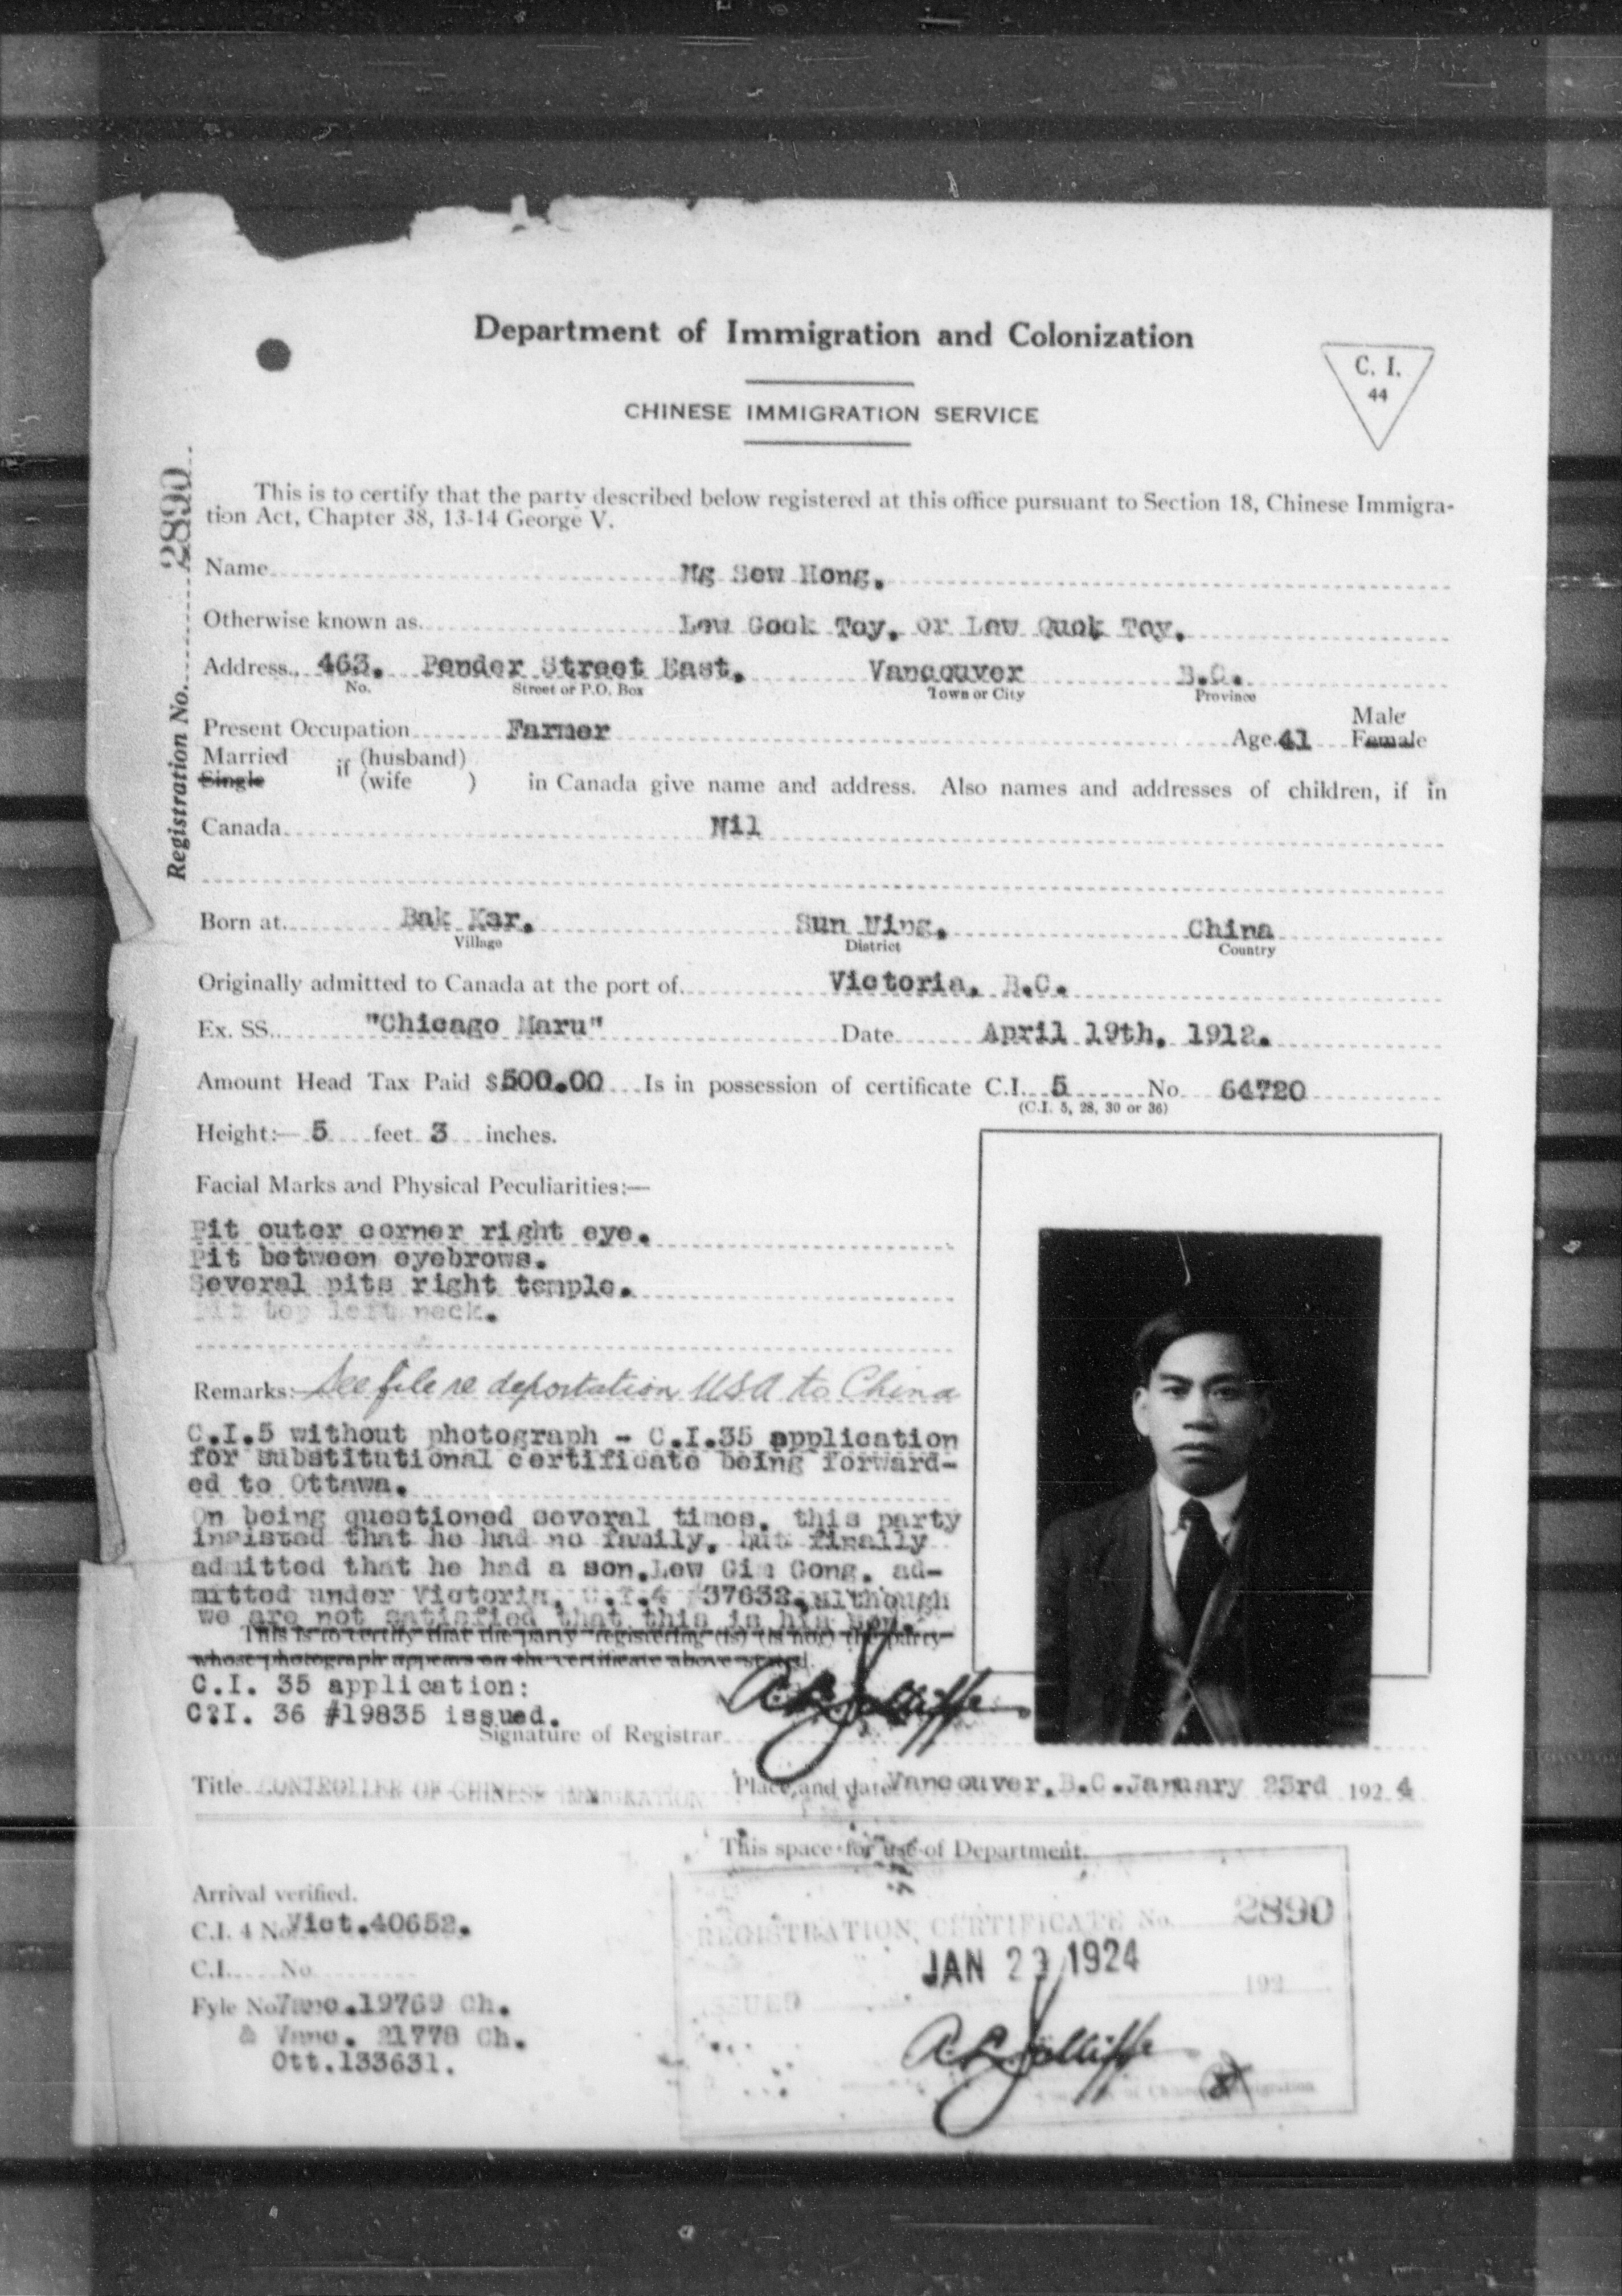 Department of Immigration and Colonization
C. I.
44
CHINESE IMMIGRATION SERVICE
Registration No. 2890
This is to certify that the party described below registered at this office pursuant to Section 18, Chinese Immigra-
tion Act, Chapter 38, 13-14 George V.
Name Ng Sew Hong.
Otherwise known as. Low Gook Toy, or Low Quok Toy.
Address. 463. Pender Street East. Vancouver B.C.
No. Street or P.O. Box Town or City Province
Present Occupation Farmer Age 41 Male
Female
Married if (husband)
Single (wife ) in Canada give name and address. Also names and addresses of children, if in
Canada Nil
Born at Bak Kar. Sun Ning. China
Village District Country
Originally admitted to Canada at the port of Victoria, B.C.
Ex. SS. "Chicago Maru" Date April 19th, 1912.
Amount Head Tax Paid $500.00 Is in possession of certificate C.I. 5 No 64720
(C.I. 5, 28, 30 or 36)
Height:— 5 feet 3 inches.
Facial Marks and Physical Peculiarities:—
Pit outer corner right eye.
Pit between eyebrows.
Several pits right temple.
Pit top left neck.
Remarks: See file re deportation USA to China
C.I.5 without photograph - C.I.35 application
for substitutional certificate being forward-
ed to Ottawa.
On being questioned several times, this party
insisted that he had no family, but finally
admitted that he had a son, Low Gim Gong, ad-
mitted under Victoria, C.I.4 37632, although
we are not satisfied that this is his son.
This is to certify that the party registering (is) (is not) the party
whose photograph appears on the certificate above stated.
C.I. 35 application:
C?I. 36 #19835 issued.
Signature of Registrar A.L. Jolliffe
Title CONTROLLER OF CHINESE IMMIGRATION Place and date Vancouver, B.C. January 23rd 192 4
This space for use of Department.
Arrival verified.
C.I. 4 No. Vict.40652.
C.I. No
Fyle No Vanc.19769 Ch.
& Vanc. 21778 Ch.
Ott.133631.
REGISTRATION CERTIFICATE No. 2890
JAN 23 1924
ISSUED 192
A.L. Jolliffe
of Chinese Immigration